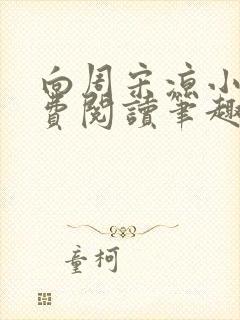 向周宋涼小
費閱讀筆趣
童柯